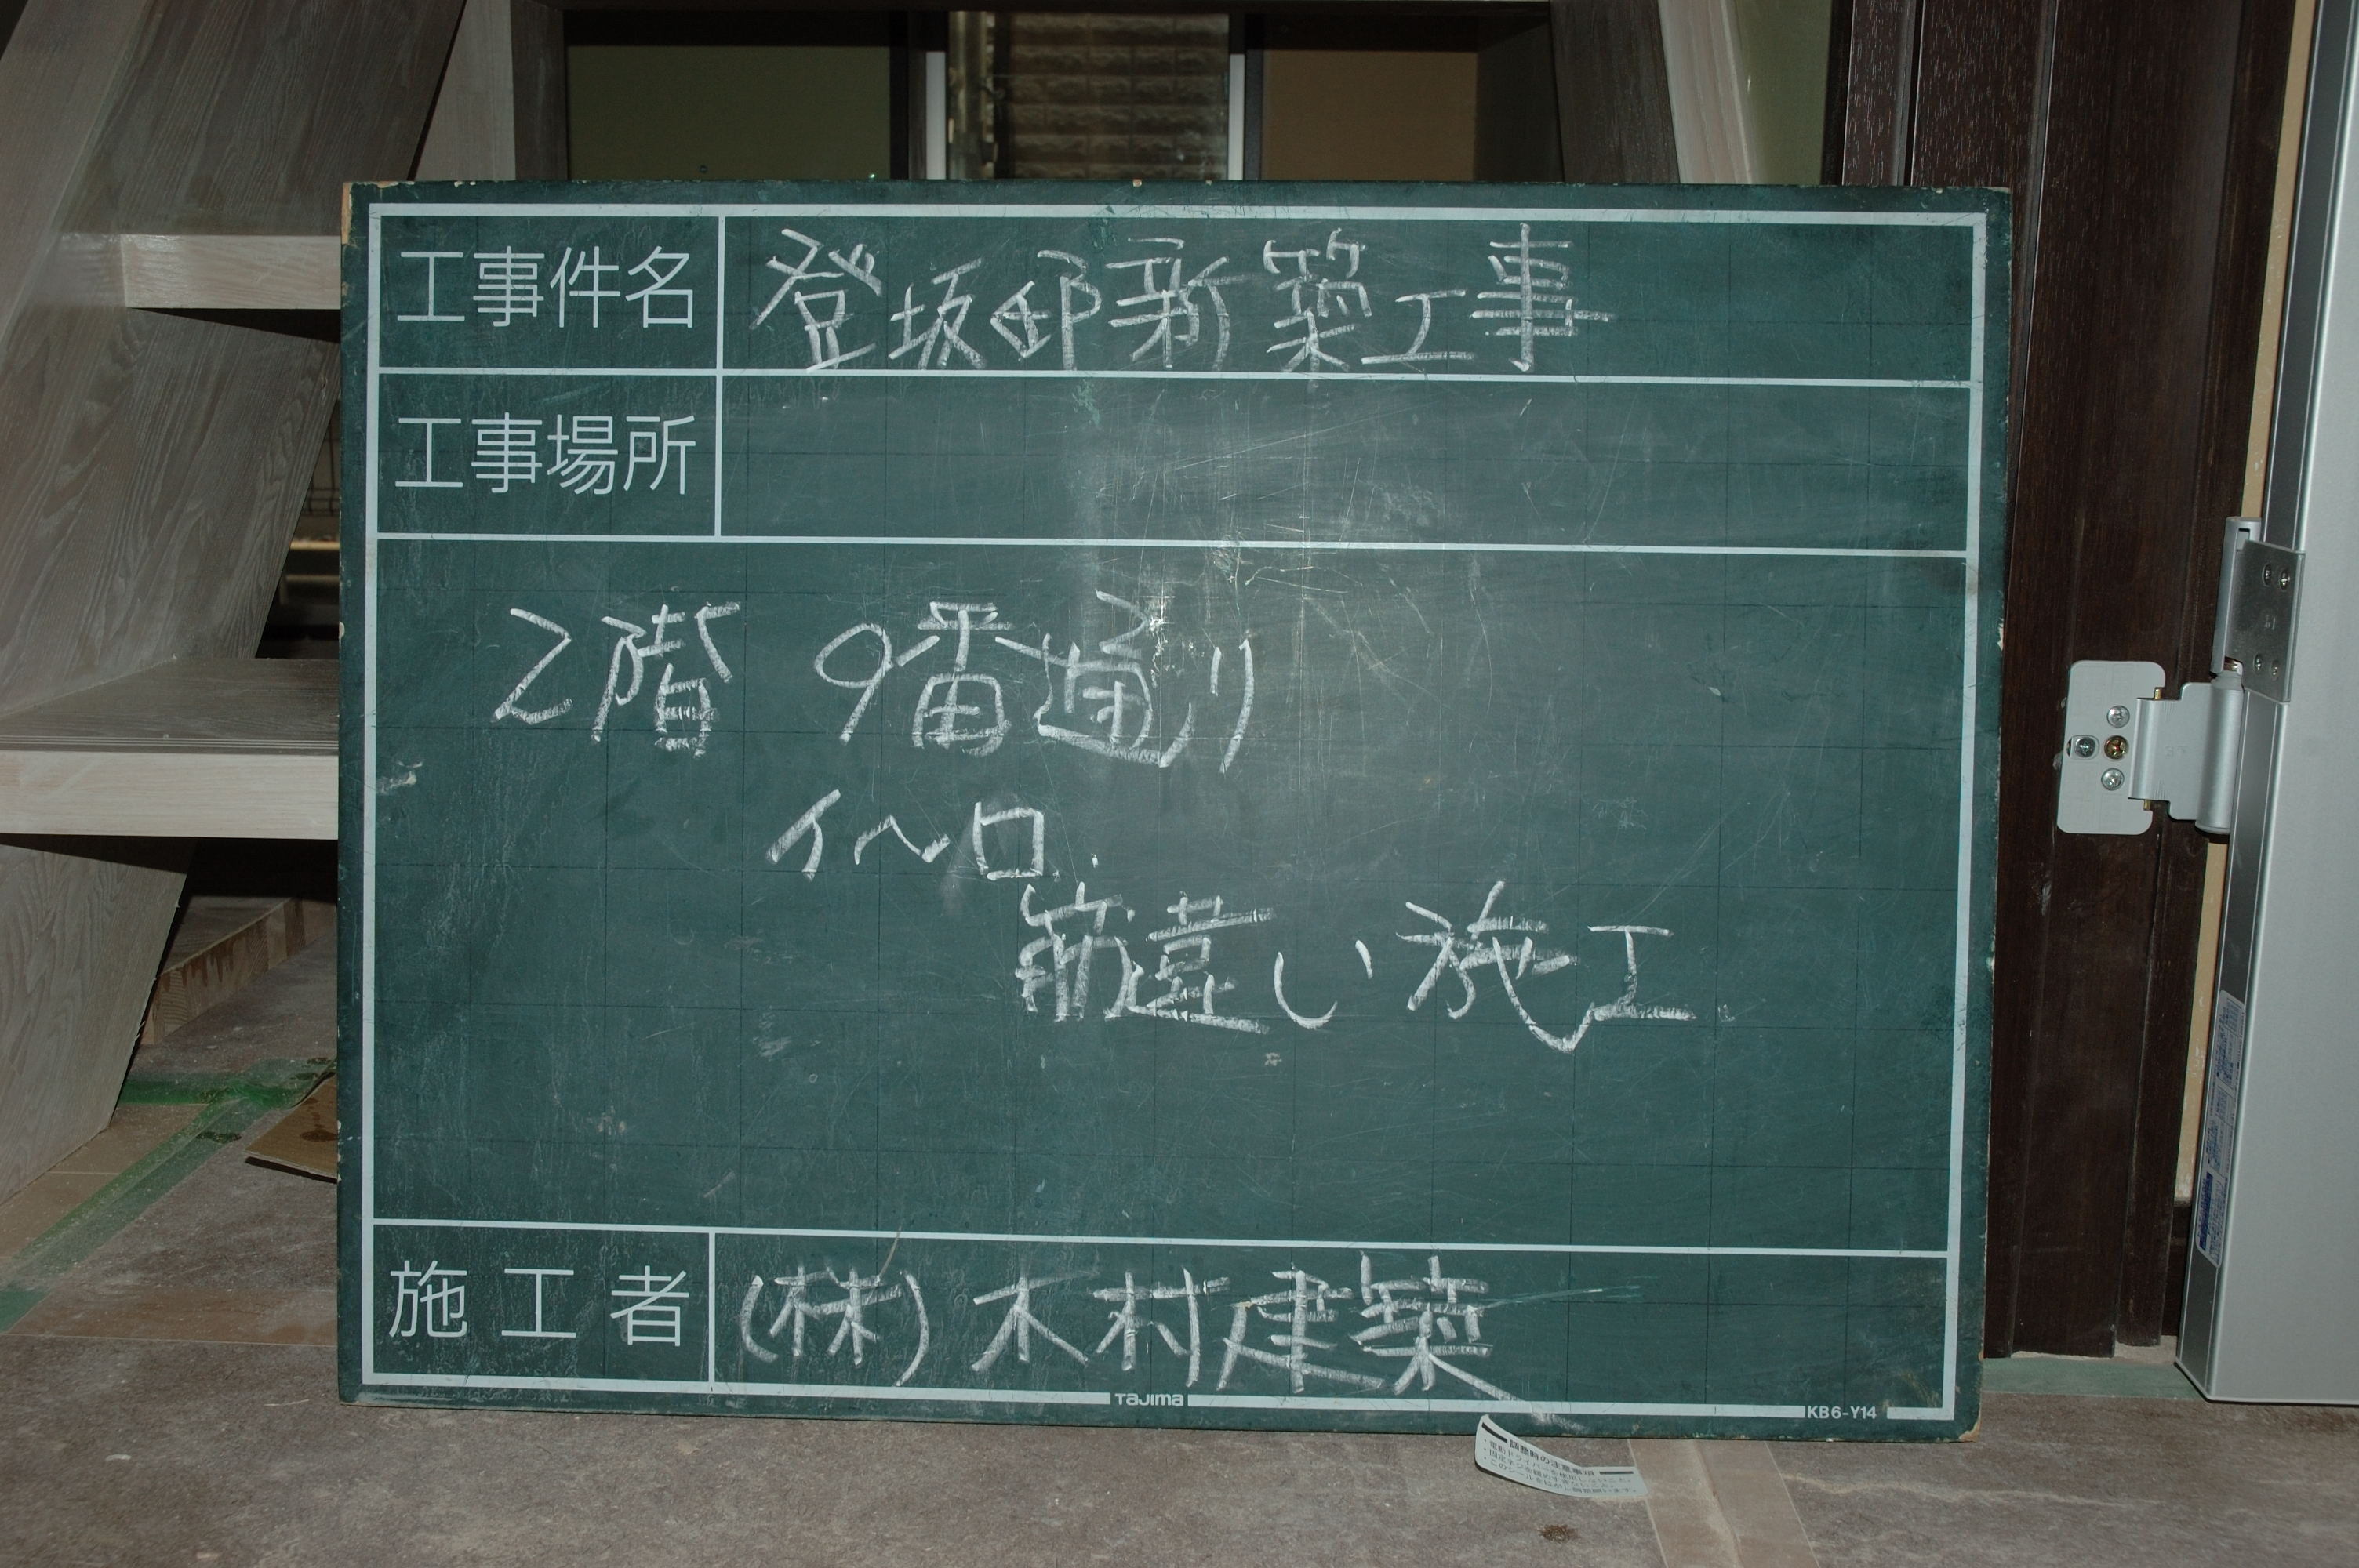 工事件名 登坂邸新築工事
工事場所
2階 9番通り
イ〜ロ
筋違い施工
施工者 (株)木村建築
TaJima
KB6-Y14
調整時の注意事項